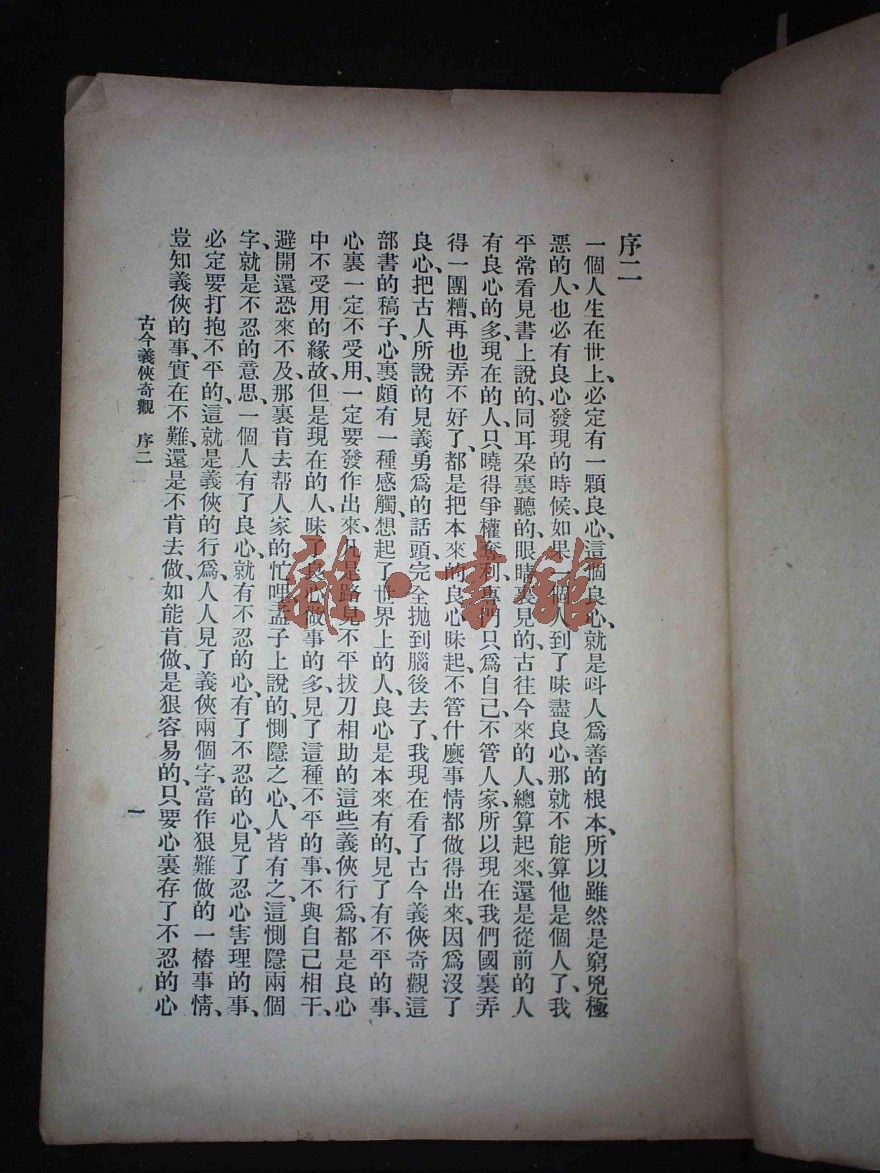 序二
一個人生在世上、必定有一顆良心、這個良心、就是呌人爲善的根本、所以雖然是窮兇極
惡的人、也必有良心發現的時候、如果一個人到了昧盡良心、那就不能算他是個人了、我
平常看見書上說的、同耳朶裏聽的、眼睛裏見的、古往今來的人、總算起來、還是從前的人
有良心的多、現在的人、只曉得爭權奪利、專門只爲自己、不管人家、所以現在我們國裏弄
得一團糟、再也弄不好了、都是把本來的良心昧起、不管什麽事情都做得出來、因爲沒了
良心、把古人所說的見義勇爲的話頭、完全抛到腦後去了、我現在看了古今義俠奇觀這
部書的稿子、心裏頗有一種感觸、想起了世界上的人、良心是本來有的、見了有不平的事、
心裏一定不受用、一定要發作出來、凡是路見不平拔刀相助的這些義俠行爲、都是良心
中不受用的緣故、但是現在的人、昧了良心做事的多、見了這種不平的事、不與自己相干、
避開還恐來不及、那裏肯去帮人家的忙哩、孟子上說的、惻隱之心、人皆有之、這惻隱兩個
字、就是不忍的意思、一個人有了良心、就有不忍的心、有了不忍的心、見了忍心害理的事、
必定要打抱不平的、這就是義俠的行爲、人人見了義俠兩個字、當作狠難做的一樁事情、
豈知義俠的事、實在不難、還是不肯去做、如能肯做、是狠容易的、只要心裏存了不忍的心
古今義俠奇觀 序二
一
雜·書館